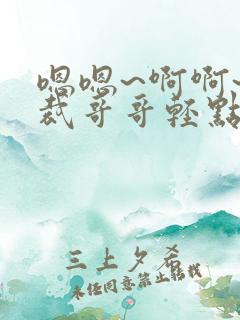 嗯嗯~啊啊~
裁哥哥轻點
三上夕希
未经同意禁止转载